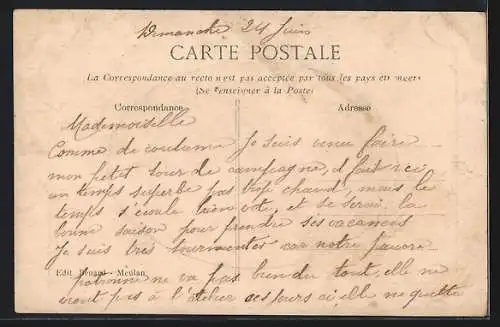 Dimanche 24 Juin
CARTE POSTALE
La Correspondance au recto n'est pas acceptée par tous les pays étrangers
(Se renseigner à la Poste)
Correspondance
Adresse
Mademoiselle
Comme de coutume je suis venu faire
mon petit tour de campagne, il fait ici
un temps superbe pas trop chaud, mais le
temps s'écoule bien vite, et se serait la
bonne saison pour prendre ses vacances
Je suis très tourmentée car notre pauvre
Edit. Bénard - Meulan
patronne ne va pas bien du tout, elle ne
vient pas à l'atelier ces jours ci, elle ne quitte